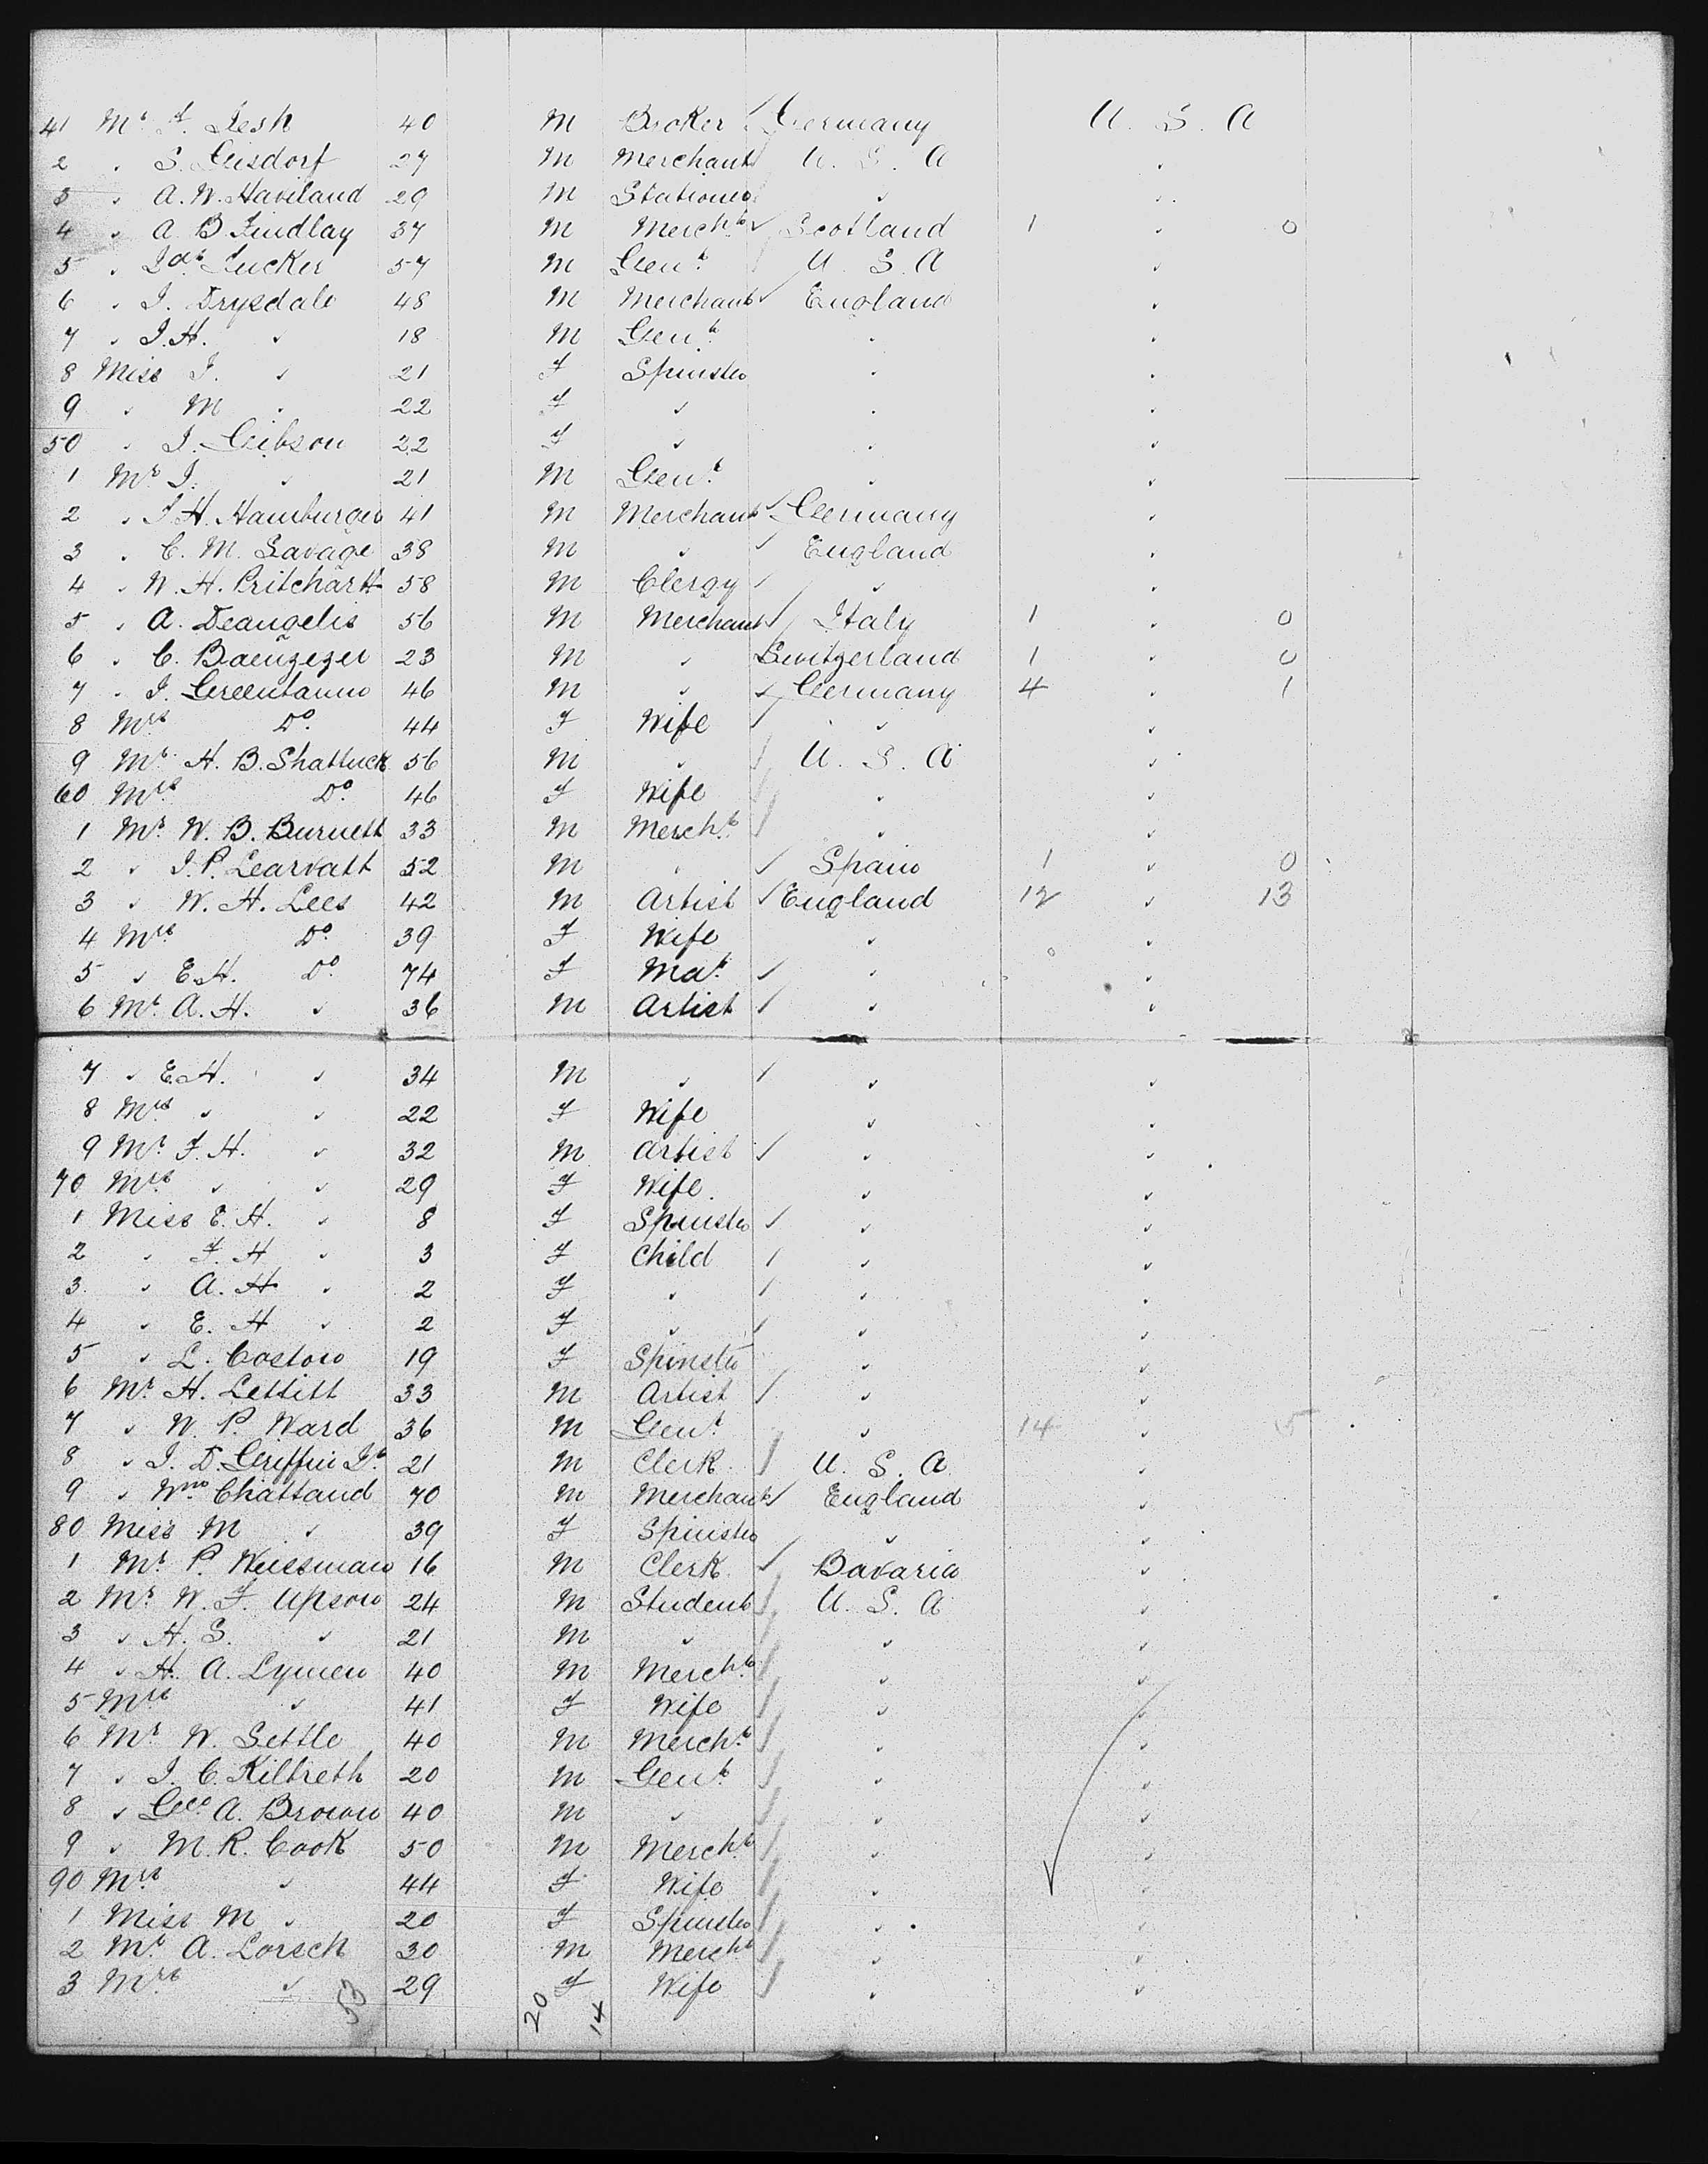 41 Mr. F. Lesh 40 M Broker Germany U. S. A
2 " S. Geisdorf 27 M Merchant U. S. A "
3 " A. W. Haviland 29 M Stationer " "
4 " A. B. Findlay 37 M Mercht. Scotland 1 " 0
5 " Tucker 57 M Gent. U. S. A "
6 " J. Drysdale 48 M Merchant England "
7 " J. H. " 18 M Gent. " "
8 Miss J. " 21 F Spinster " "
9 " M " 22 F " " "
50 " J. Gibson 22 F " " "
1 Mr. J. " 21 M Gent. " "
2 " J. H. Hamburger 41 M Merchant Germany "
3 " C. M. Savage 38 M " England "
4 " W. H. Pritchartt 58 M Clergy " "
5 " A. Deangelis 56 M Merchant Italy 1 " 0
6 " C. Baenzezer 23 M " Switzerland 1 " 0
7 " J. Greentanno 46 M " Germany 4 " 1
8 Mrs Do. 44 F Wife " "
9 Mr. H. B. Shattuck 56 M " U. S. A "
60 Mrs. Do. 46 F Wife " "
1 Mr. W. B. Burnett 33 M Mercht. " "
2 " J. P. Learvatt 52 M " Spain 1 " 0
3 " W. H. Lees 42 M Artist England 12 " 13
4 Mrs. Do. 39 F Wife " "
5 " E. H. Do. 74 F Mat. " "
6 Mr. A. H. " 36 M Artist " "
7 " E. H. " 34 M " " "
8 Mrs " " 22 F Wife " "
9 Mr. F. H. " 32 M Artist " "
70 Mrs. " " 29 F Wife. " "
1 Miss E. H. " 8 F Spinster " "
2 " F. H " 3 F Child " "
3 " A. H " 2 F " " "
4 " E. H " 2 F " " "
5 " L. Costow 19 F Spinster " "
6 Mr. H. Lettitt 33 M Artist " "
7 " W. P. Ward 36 M Gent. " 14 " 15
8 " J. D. Griffin Jr. 21 M Clerk U. S. A "
9 " Wm Chattaud 70 M Merchant England "
80 Miss M " 39 F Spinster " "
1 Mr. P. Weissman 16 M Clerk Bavaria "
2 Mr. W. F. Upson 24 M Student U. S. A "
3 " H. S. " 21 M " " "
4 " H. A. Lymen 40 M Mercht. " "
5 Mrs " 41 F Wife " "
6 Mr. W. Settle 40 M Mercht. " "
7 " J. C. Kilbreth 20 M Gent. " "
8 " Geo. A. Brown 40 M " " "
9 " M. R. Cook 50 M Mercht. " "
90 Mrs. " 44 F Wife " "
1 Miss M " 20 F Spinster " "
2 Mr. A. Lorsch 30 M Mercht " "
3 Mrs. " 29 F Wife " "
53 20 14